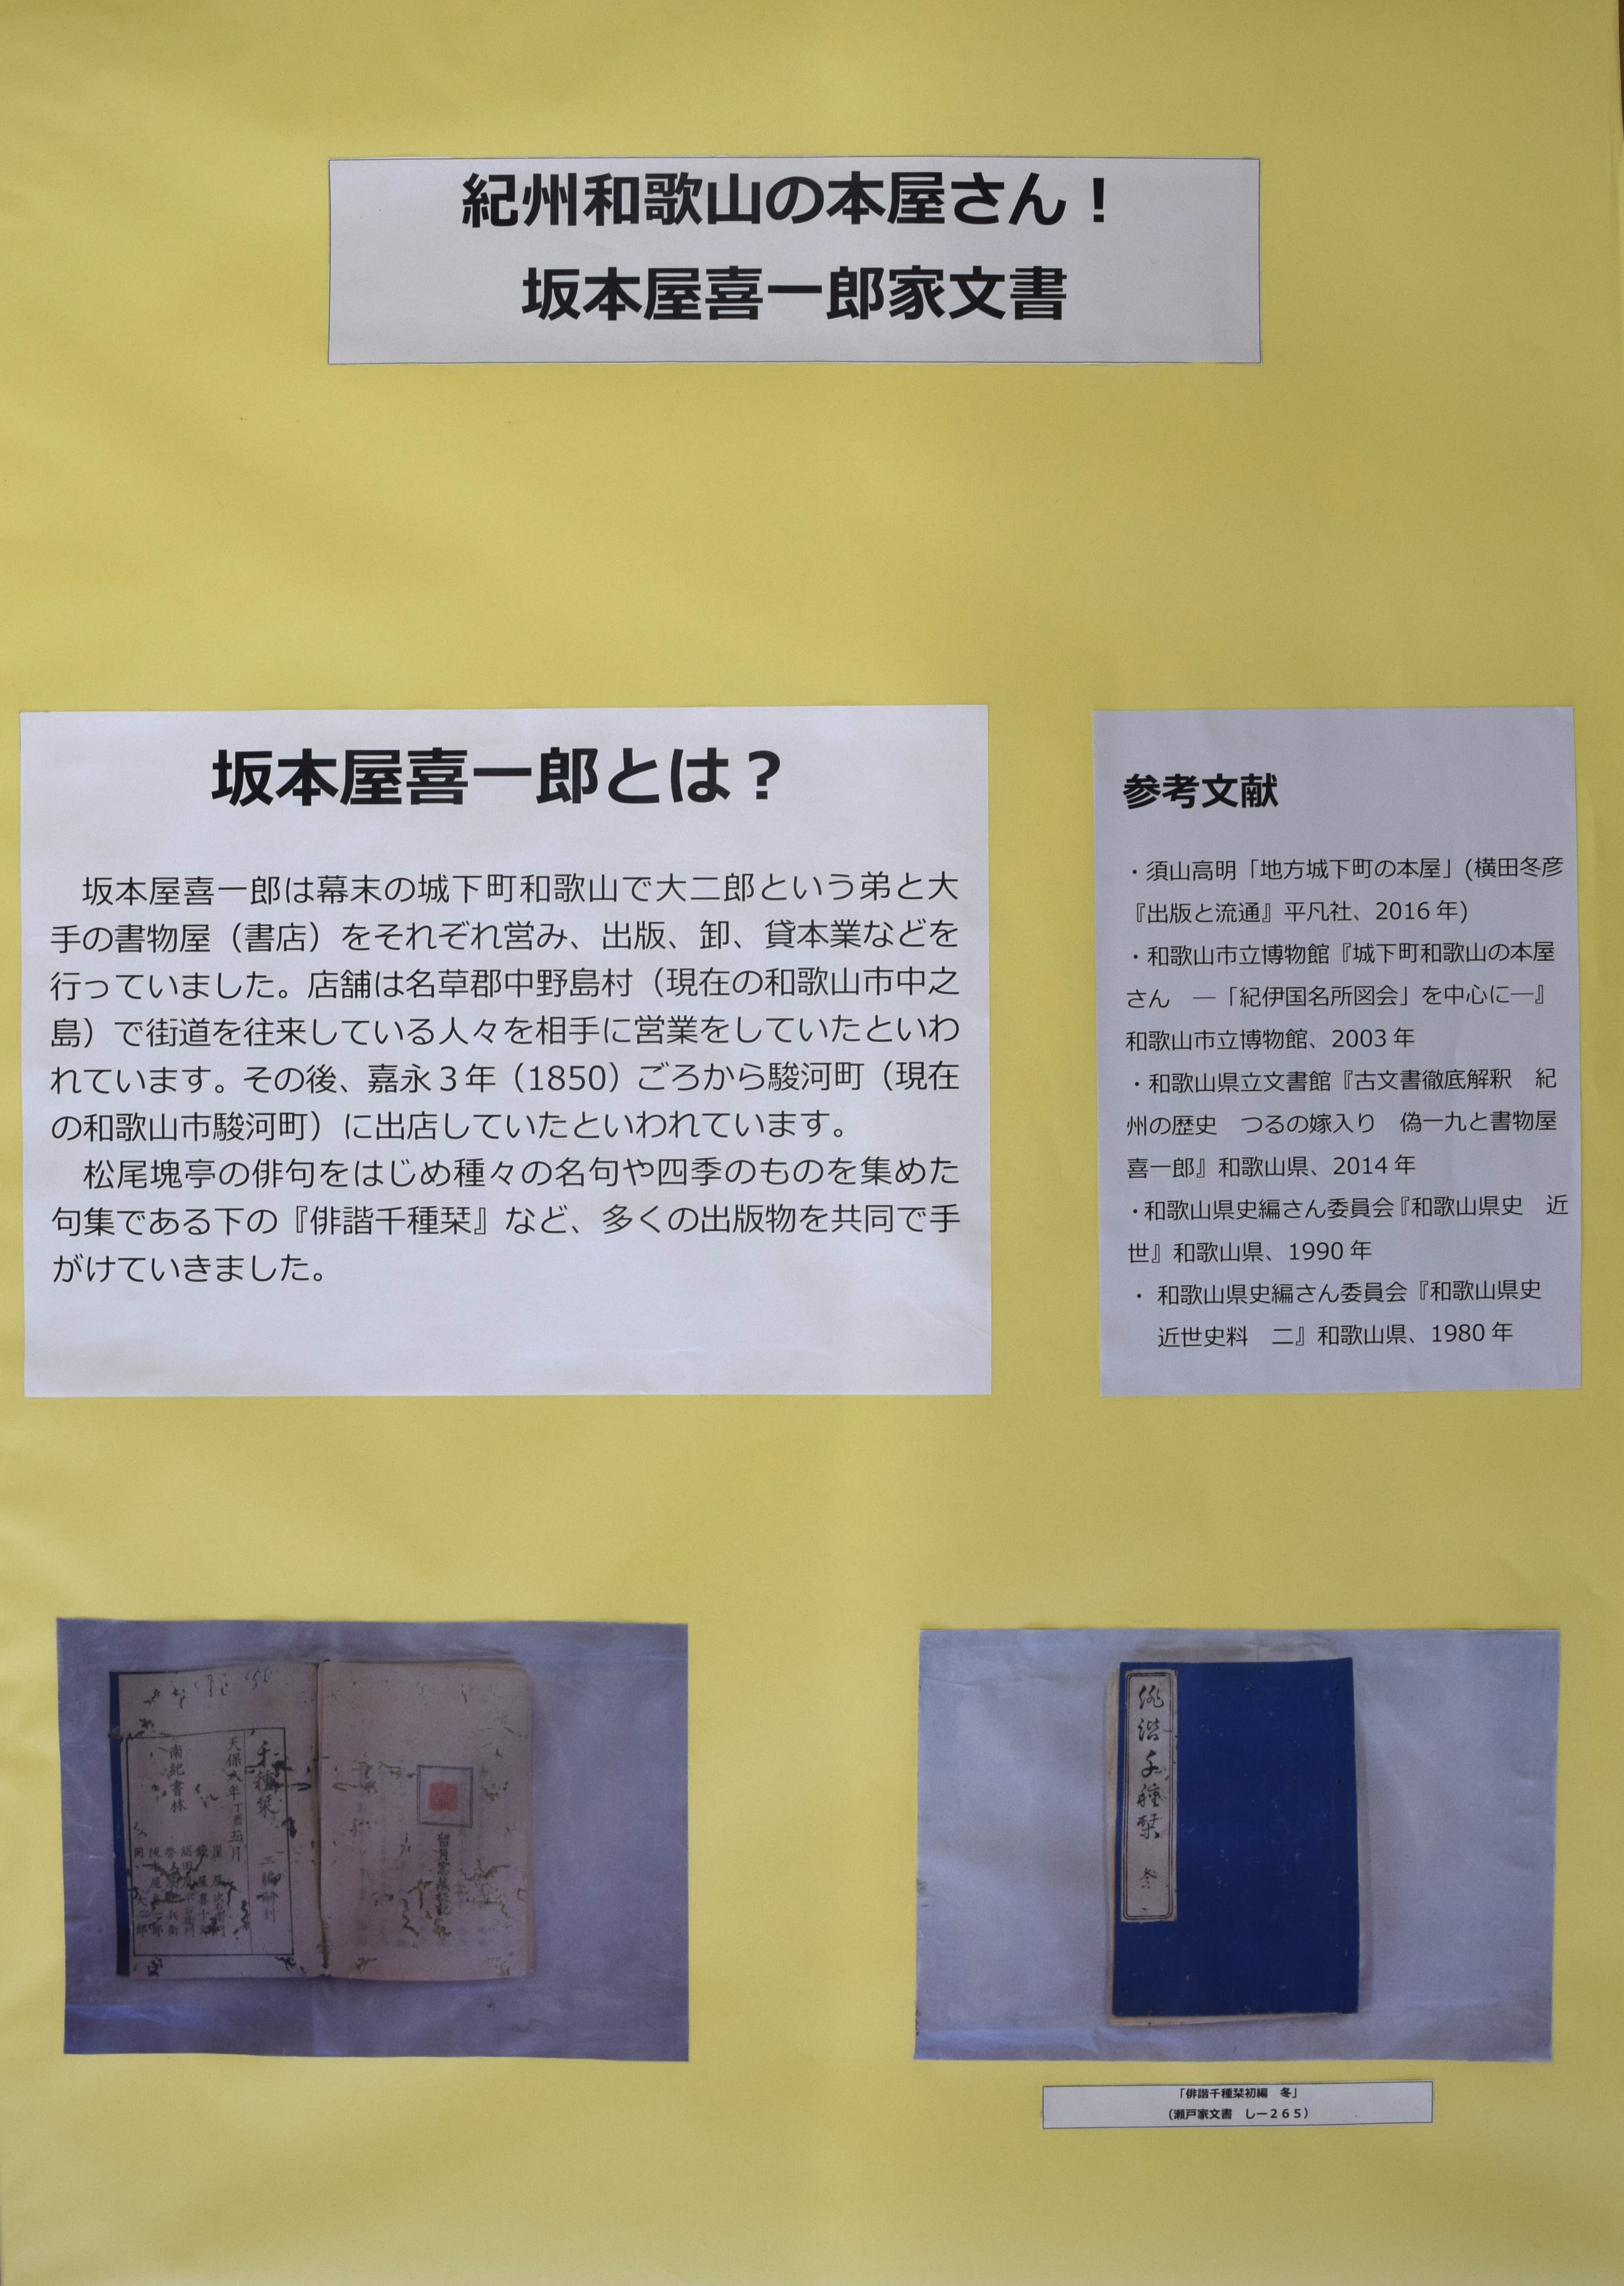 紀州和歌山の本屋さん！
坂本屋喜一郎家文書
坂本屋喜一郎とは？
坂本屋喜一郎は幕末の城下町和歌山で大二郎という弟と大
手の書物屋（書店）をそれぞれ営み、出版、卸、貸本業などを
行っていました。店舗は名草郡中野島村（現在の和歌山市中之
島）で街道を往来している人々を相手に営業をしていたといわ
れています。その後、嘉永３年（1850）ごろから駿河町（現在
の和歌山市駿河町）に出店していたといわれています。
松尾塊亭の俳句をはじめ種々の名句や四季のものを集めた
句集である下の『俳諧千種栞』など、多くの出版物を共同で手
がけていきました。
参考文献
・須山高明「地方城下町の本屋」(横田冬彦
『出版と流通』平凡社、2016 年)
・和歌山市立博物館『城下町和歌山の本屋
さん　―「紀伊国名所図会」を中心に―』
和歌山市立博物館、2003 年
・和歌山県立文書館『古文書徹底解釈　紀
州の歴史　つるの嫁入り　偽一九と書物屋
喜一郎』和歌山県、2014 年
・和歌山県史編さん委員会『和歌山県史　近
世』和歌山県、1990 年
・ 和歌山県史編さん委員会『和歌山県史
近世史料　二』和歌山県、1980 年
千種栞
天保八年丁酉五月
南紀書林
俳諧千種栞 冬
「俳諧千種栞初編　冬」
（瀬戸家文書　し－２６５）